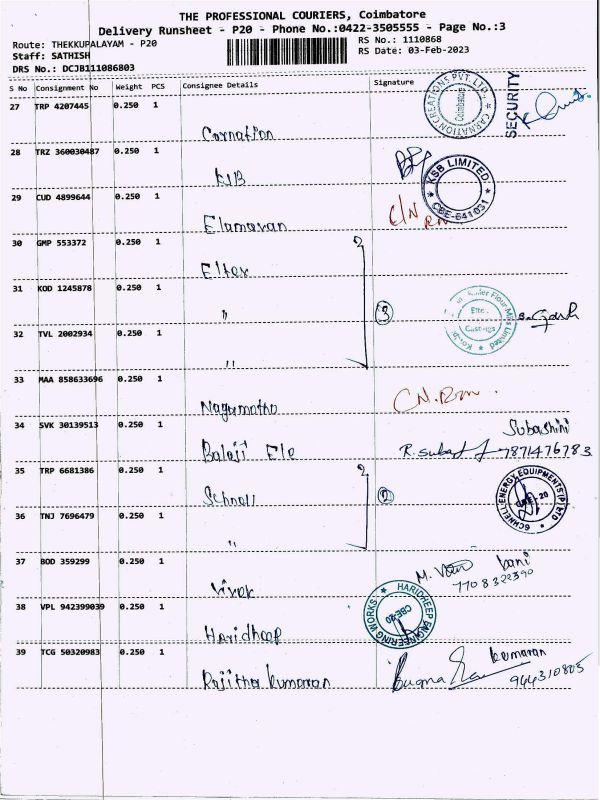 THE PROFESSIONAL COURIERS, Coimbatore
Delivery Runsheet - P20 - Phone No.:0422-3505555 - Page No.:3
Route: THEKKUPALAYAM - P20 RS No.: 1110868
Staff: SATHISH RS Date: 03-Feb-2023
DRS No.: DCJB111086803
S No Consignment No Weight PCS Consignee Details Signature
27 TRP 4207445 0.250 1
Carnation
CARNATION CREATIONS PVT. LTD. Coimbatore
SECURITY
28 TRZ 360030487 0.250 1
KSB
KSB LIMITED. CBE-641031
29 CUD 4899644 0.250 1
Elamaran
C/N
30 GMP 553372 0.250 1
Eltex
31 KOD 1245878 0.250 1
"
3
32 TVL 2002934 0.250 1
"
33 MAA 858633696 0.250 1
Nagamatho
CN.Rm.
34 SVK 30139513 0.250 1
Balaji Ele
Subashini
R.suba 7871476783
35 TRP 6681386 0.250 1
Schnell
2
SCHNELL ENERGY EQUIPMENTS (P) LTD
36 TNJ 7696479 0.250 1
"
37 BOD 359299 0.250 1
Vivek
M. Vani
7708322390
38 VPL 942399039 0.250 1
Haridheep
HARIDHEEP ENGINEERING WORKS CBE-20
39 TCG 50320983 0.250 1
Rajitha kumaran
kumaran
944310805